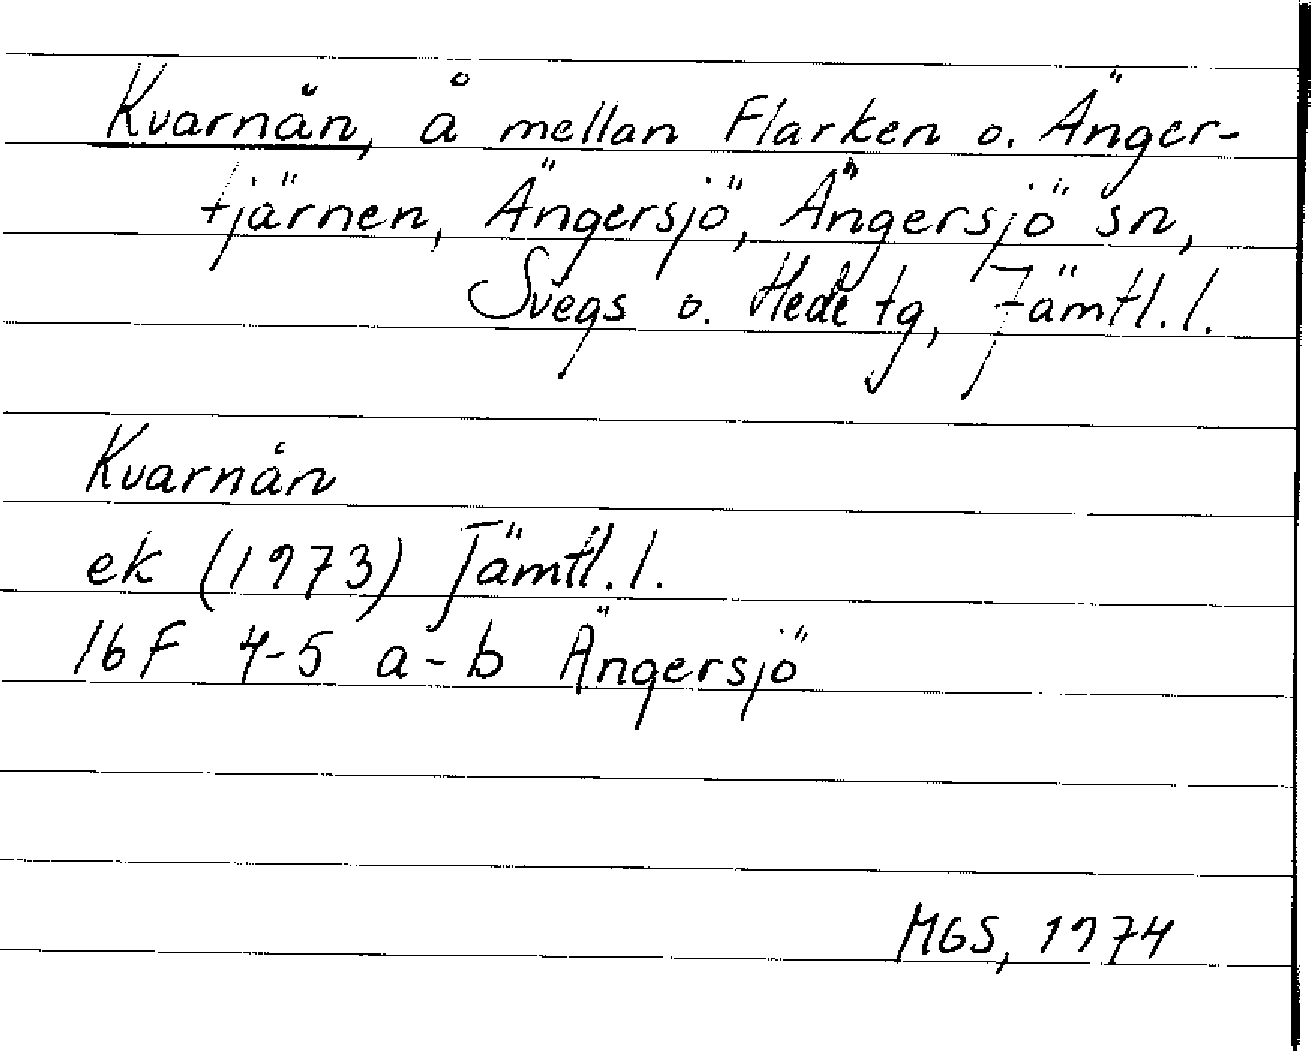 Kvarnån, å mellan Flarken o. Änger-
tjärnen, Ängersjö, Ängersjö sn,
Svegs o. Hede tg, Jämtl. l.
Kvarnån
ek (1973) Jämtl. l.
16F 4-5 a-b Ängersjö
MGS, 1974